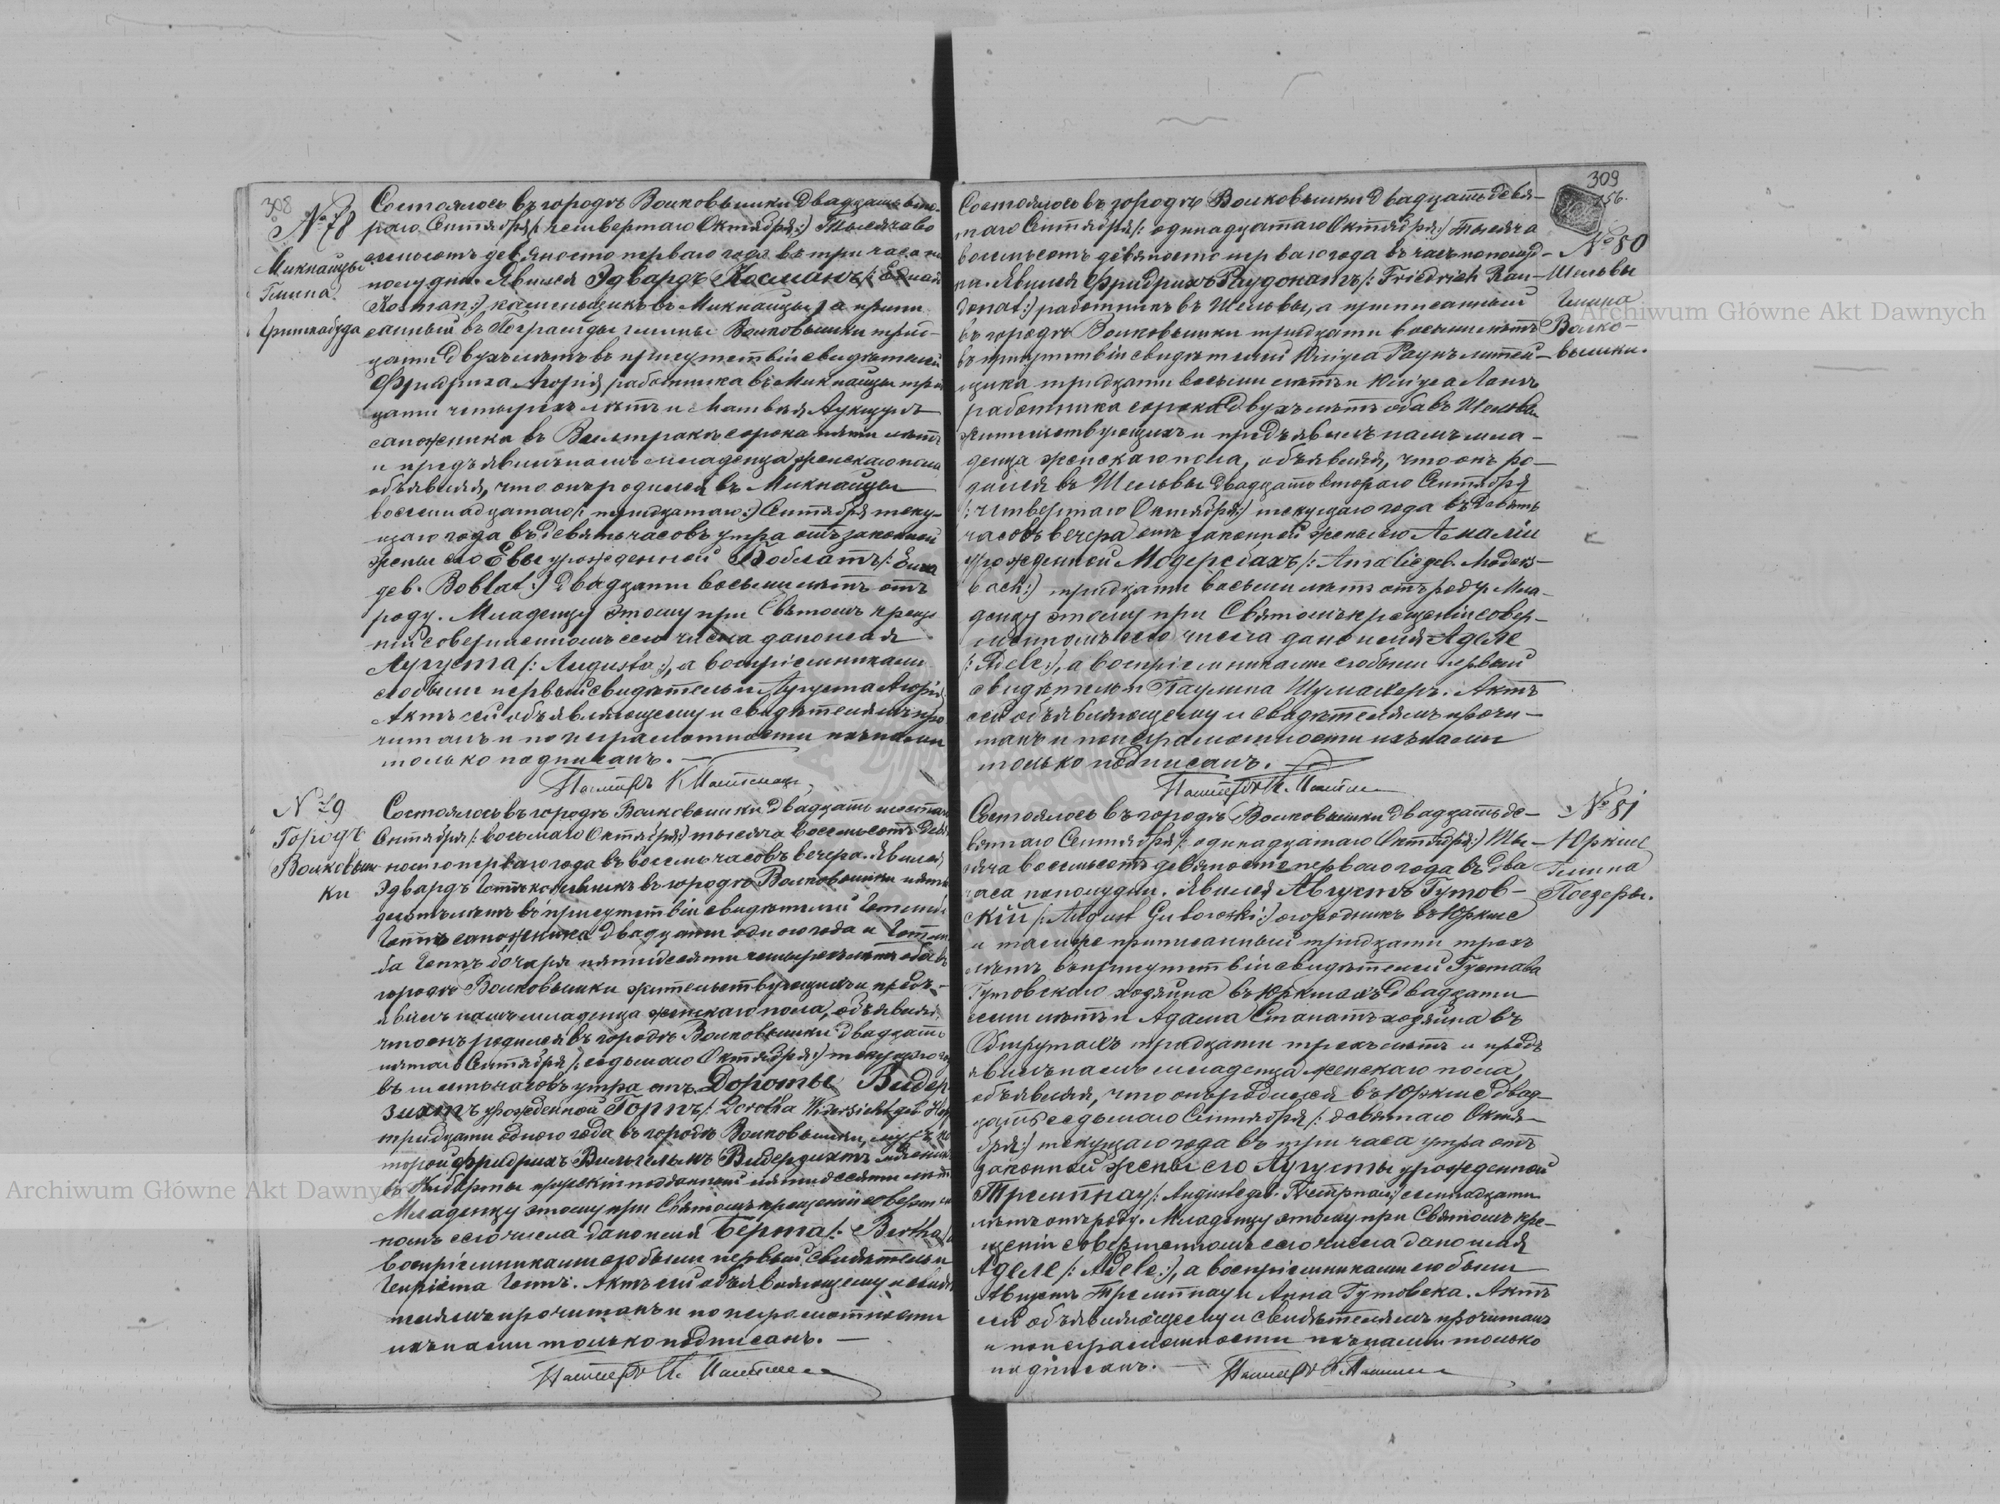 308
№ 78
Микнайцы
Гмина
Гришкабуда
Состоялось въ городѣ Волковышки двадцать вто-
раго Сентября /: четвертаго Октября :/ тысяча во
семьсотъ девяносто перваго года въ три часа по
полудни. Явился Эдвардъ Косманъ /: Eduard
Kosman :/ каменьщикъ въ Микнайцы, а припи
санный въ Пограмды гмины Волковышки трид-
цати двухъ лѣтъ въ присутствіи свидѣтелей
Фридриха работника въ Микнайцы трид
цати четырехъ лѣтъ и Матвѣя
сапожника въ сорока пяти лѣтъ
и предъявилъ намъ младенца женскаго пола
объявляя, что онъ родился въ Микнайцы
восемнадцатаго /: тридцатаго :/ Сентября теку-
щаго года въ девять часовъ утра отъ законной
жены его Евы урожденной Боблатъ /: Ewa
geb. Boblat :/ двадцати восьми лѣтъ отъ
роду. Младенцу этому при Святомъ креще
ніи совершенномъ сего числа дано имя
Аугуста /: Augusta :/, а воспріемниками
его были первый свидѣтель и Аугуста
Актъ сей объявляющему и свидѣтелямъ про
читанъ и по неграмотности ихъ нами
только подписанъ. —
Пасторъ К.
№ 79
Городъ
Волковыш
ки
Состоялось въ городѣ Волковышки двадцать шестаго
Сентября /: восьмаго Октября :/ тысяча восемьсотъ девя
носто перваго года въ восемь часовъ вечера. Явился
Эдвардъ въ городѣ Волковышки пять
десятъ лѣтъ въ присутствіи свидѣтелей
сапожника двадцати одного года и
бочаря пятидесяти четырехъ лѣтъ оба въ
городѣ Волковышки жительствующихъ и предъ-
явилъ намъ младенца женскаго пола, объявляя
что онъ родился въ городѣ Волковышки двадцать
пятаго Сентября /: седьмаго Октября :/ текущаго года
въ шесть часовъ утра отъ Дороты Видер
зихтъ урожденной Горпъ /: Dorotha Widersicht geb.
тридцати одного года въ городѣ Волковышки, мужъ ко
торой Фридрихъ Вильгельмъ Видерзихтъ
въ Кибарты прусскоподданный пятидесяти лѣтъ
Младенцу этому при Святомъ крещеніи совершен
номъ сего числа дано имя Берта /: Bertha :/
воспріемниками его были первый свидѣтель и
Генріета Актъ сей объявляющему и свидѣ
телямъ прочитанъ и по неграмотности
ихъ нами только подписанъ. —
Пасторъ К.
309
156.
№ 80
Шельвы
Гмина
Волко-
вышки.
Состоялось въ городѣ Волковышки двадцать девя-
таго Сентября /: одинадцатаго Октября :/ тысяча
восемьсотъ девяносто перваго года въ часъ пополуд-
ни. Явился Фридрихъ Раудонатъ /: Friedrich Rau-
donat :/ работникъ въ Шельвы, а приписанный
въ городѣ Волковышки тридцати восьми лѣтъ
въ присутствіи свидѣтелей Юліуса литей-
щика тридцати восьми лѣтъ и Юліуса
работника сорока двухъ лѣтъ оба въ Шельвы
жительствующихъ и предъявилъ намъ мла-
денца женскаго пола, объявляя, что онъ ро-
дился въ Шельвы двадцать втораго Сентября
/: четвертаго Октября :/ текущаго года въ девять
часовъ вечера отъ законной жены его Амаліи
урожденной Модерсбахъ /: Amalie geb. Moders-
bach :/ тридцати восьми лѣтъ отъ роду. Мла-
денцу этому при Святомъ крещеніи совер-
шенномъ сего числа дано имя Аделе
/: Adele :/, а воспріемниками его были первый
свидѣтель и Паулина Шумахеръ. Актъ
сей объявляющему и свидѣтелямъ прочи-
танъ и по неграмотности ихъ нами
только подписанъ. —
Пасторъ К.
№ 81
Юркше
Гмина
Поезеры.
Состоялось въ городѣ Волковышки двадцать де-
вятаго Сентября /: одинадцатаго Октября :/ ты-
сяча восемьсотъ девяносто перваго года въ два
часа пополудни. Явился Августъ Гутов-
скій /: August Gutowski :/ огородникъ въ Юркше
и тамже приписанный тридцати трехъ
лѣтъ въ присутствіи свидѣтелей Густава
Гутовскаго хозяина въ Юркшахъ двадцати
семи лѣтъ и Адама хозяина въ
тридцати трехъ лѣтъ и предъ
явилъ намъ младенца женскаго пола,
объявляя, что онъ родился въ Юркше двад-
цать седьмаго Сентября /: девятаго Октя-
бря :/ текущаго года въ три часа утра отъ
законной жены его Аугусты урожденной
Тремпнау /: Auguste geb. семнадцати
лѣтъ отъ роду. Младенцу этому при Святомъ кре-
щеніи совершенномъ сего числа дано имя
Аделе /: Adele :/, а воспріемниками его были
Августъ Тремпнау и Анна Гутовска. Актъ
сей объявляющему и свидѣтелямъ прочитанъ
и по неграмотности ихъ нами только
подписанъ. —
Пасторъ К.
Archiwum Główne Akt Dawnych
Archiwum Główne Akt Dawnych